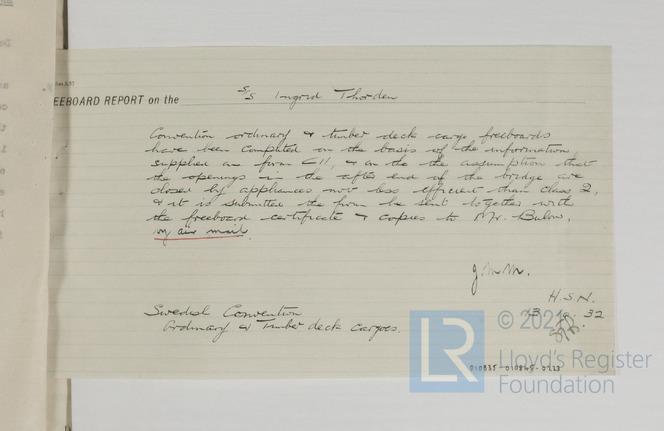 FREEBOARD REPORT on the S/S Ingrid Thorden
Convention ordinary & timber deck cargo freeboards
have been computed on the basis of the information
supplied on form C11, & on the the assumption that
the openings in the after end of the bridge are
closed by appliances not less efficient than class 2,
& it is submitted the form be sent together with
the freeboard certificate & copies to Mr. Bulow,
by air mail.
J.M.M.
H.S.N.
32
Swedish Convention
Ordinary & Timber deck cargoes.
© 2021
LR
Lloyd's Register
Foundation